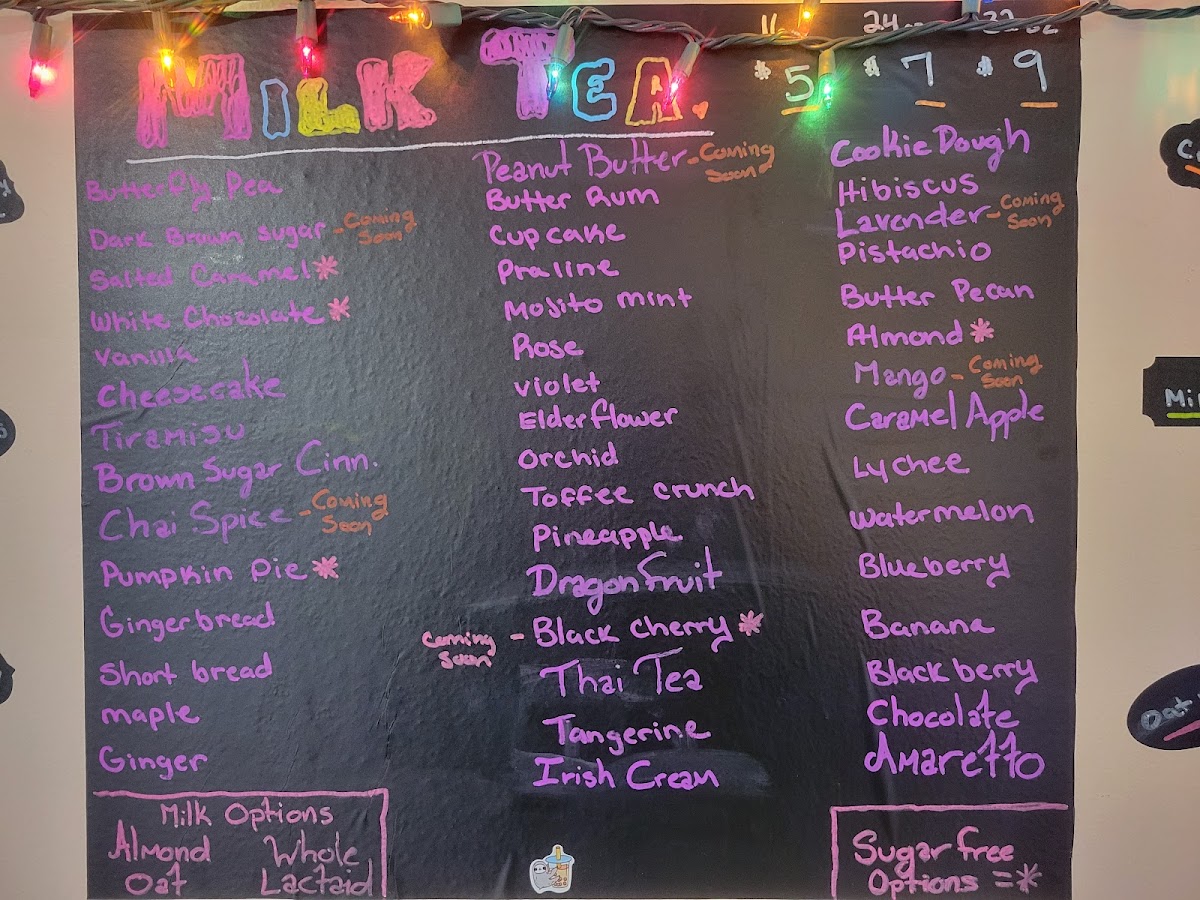 MILK TEA.
24 oz
$5 $7 $9
Butterfly Pea
Dark Brown Sugar - Coming Soon
Salted Caramel*
White Chocolate*
Vanilla
Cheesecake
Tiramisu
Brown Sugar Cinn.
Chai Spice - Coming Soon
Pumpkin Pie*
Gingerbread
Short bread
maple
Ginger
Peanut Butter - Coming Soon
Butter Rum
Cupcake
Praline
Mojito mint
Rose
violet
Elderflower
Orchid
Toffee crunch
Pineapple
Dragonfruit
Coming Soon - Black cherry*
Thai Tea
Tangerine
Irish Cream
Cookie Dough
Hibiscus
Lavender - Coming Soon
Pistachio
Butter Pecan
Almond*
Mango - Coming Soon
Caramel Apple
Lychee
Watermelon
Blueberry
Banana
Blackberry
Chocolate
Amaretto
Milk Options
Almond Whole
Oat Lactaid
Sugar free
Options =*
Oat